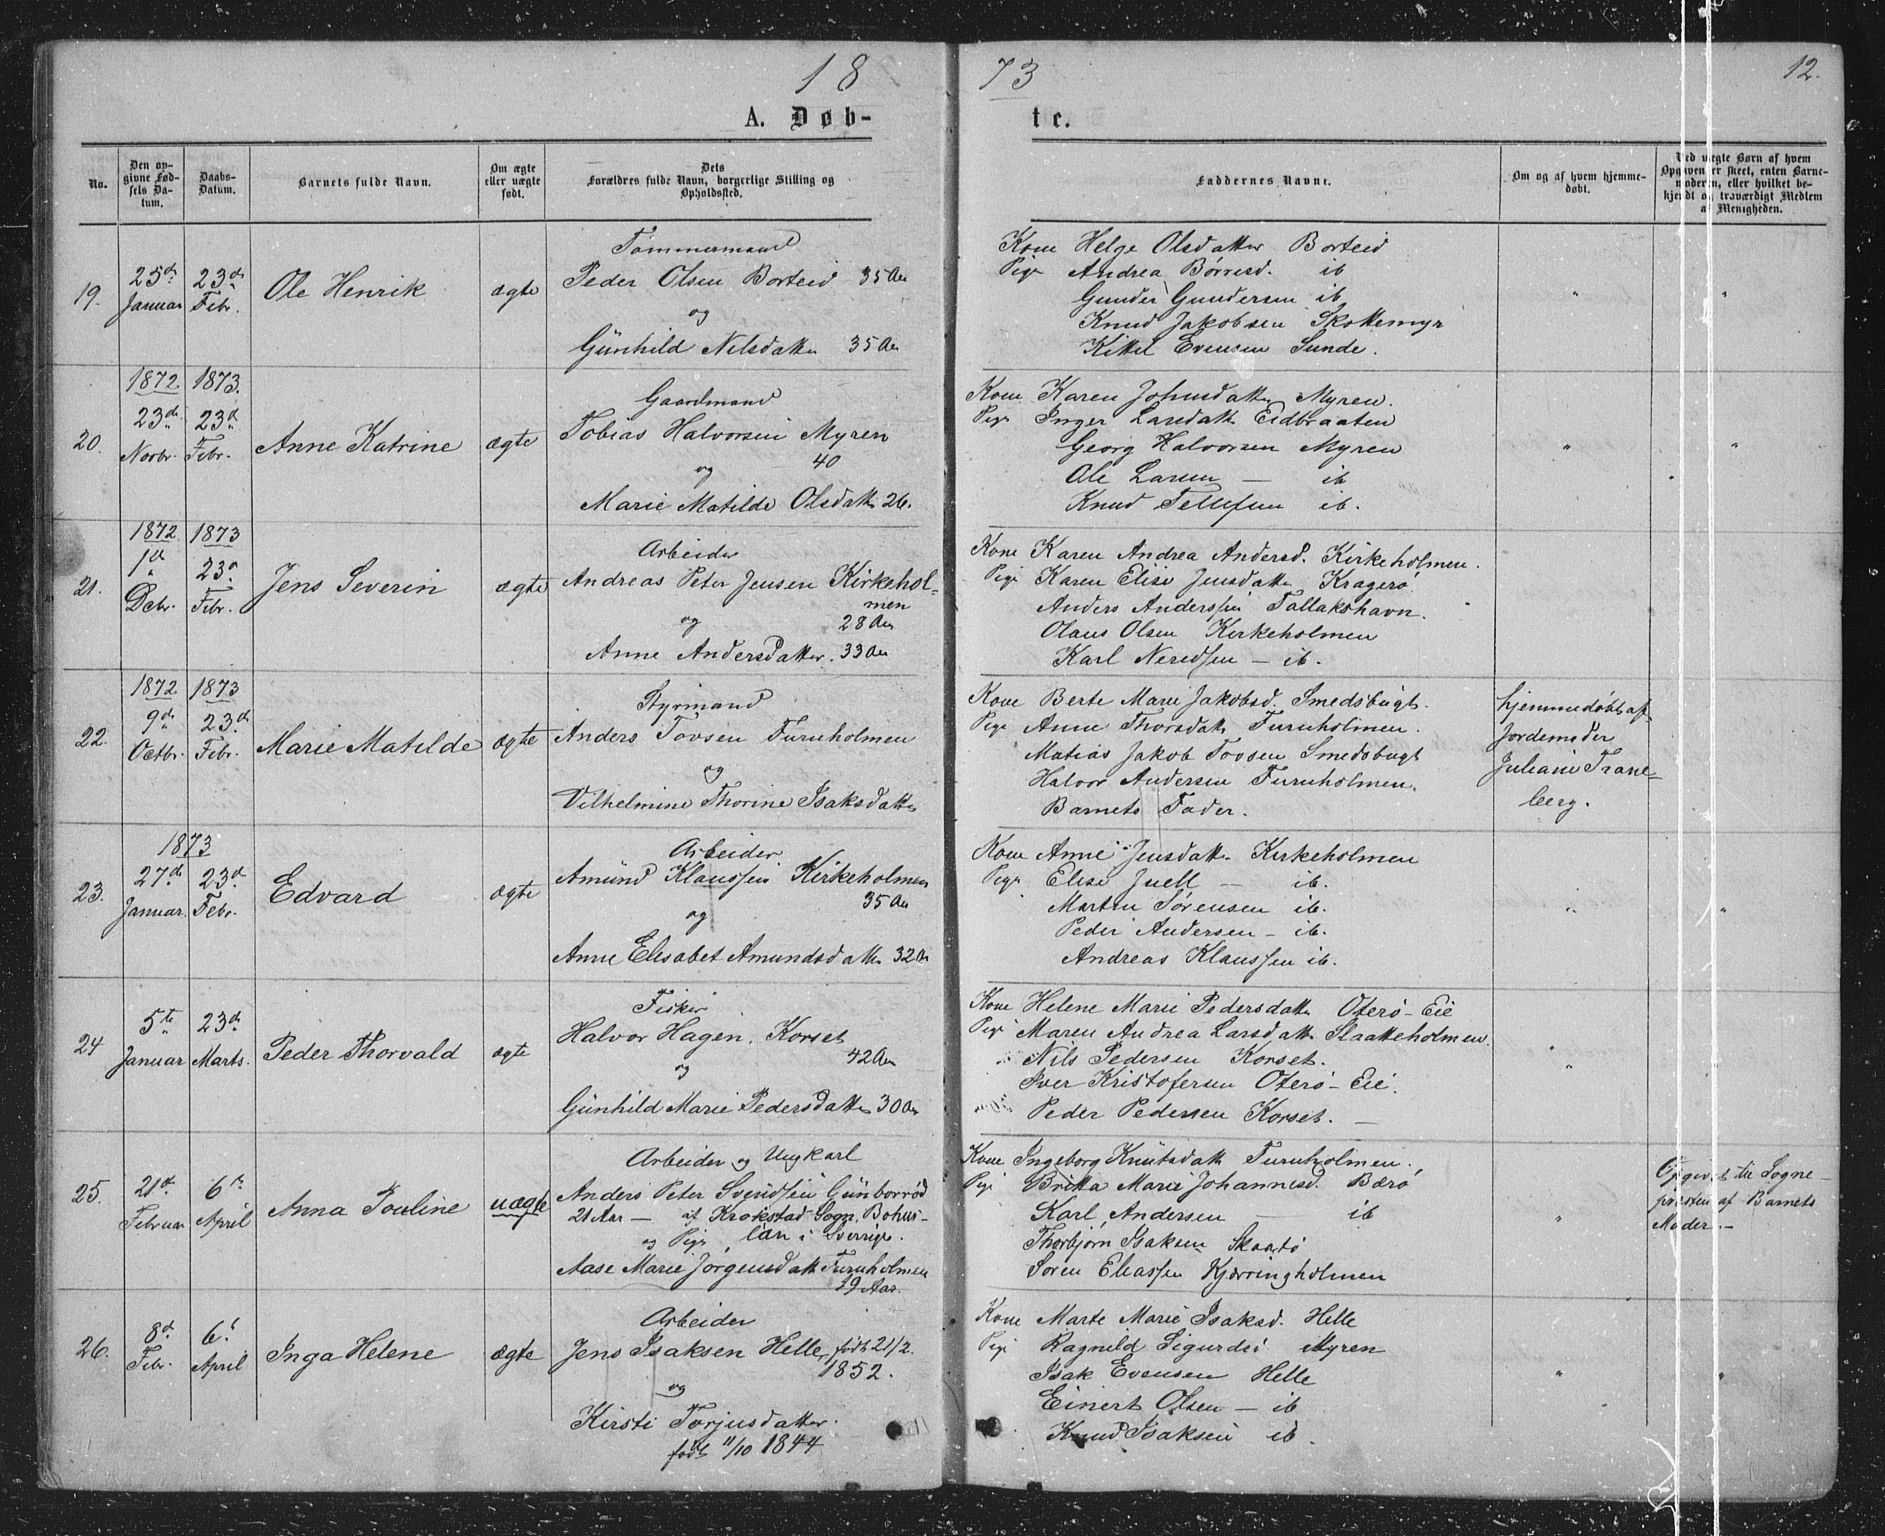 18 73 12.
A. Døb- te.
No.
Den opgivne Fødsels Datum.
Daabs-Datum.
Barnets fulde Navn.
Om ægte eller uægte født.
Dets Forældres fulde Navn, borgerlige Stilling og Opholdssted.
Faddernes Navne.
Om og af hvem hjemmedøbt.
Ved uægte Børn af hvem Opgaven er skeet, enten Barnemoderen, eller hvilket bekjendt og troværdigt Medlem af Menigheden.
19.
25de Januar
23de Febr.
Ole Henrik
ægte
Tømmermand
Peder Olsen Borteid 35 Aar
og
Gunhild Nilsdatter 35 Aar
Kone Helge Olsdatter Borteid
Pige Andrea Børresd. ib
Gunder Gundersen ib
Knud Jakobsen Skottemyr
Kittel Evensen Sunde.
20.
1872 23de Novbr.
1873. 23de Febr.
Anne Katrine
ægte
Gaardmand
Tobias Halvorsen Myren
og 40
Marie Matilde Olsdatt. 26.
Kone Karen Johnsdatter Myren.
Pige Inger Larsdatt. Eidbraaten
Georg Halvorsen Myren
Ole Larsen — ib
Knud Tellefsen ib.
21.
1872 1de Decbr.
1873 23de Febr.
Jens Severin
ægte
Arbeider
Andreas Peter Jensen Kirkehol-
men
og 28 Aar
Anne Andersdatter. 33 Aar
Kone Karen Andrea Andersd. Kirkeholmen.
Pige Karen Elise Jensdatt. Kragerø
Anders Anderssen Tallakshavn.
Olaus Olsen Kirkeholmen
Karl Neredsen — ib.
22.
1872 9de Octbr.
1873 23de Febr.
Marie Matilde
ægte
Styrmand
Anders Tovsen Furuholmen
og
Vilhelmine Thorine Isaksdatter
Kone Berte Marie Jakobsd. Smedsbugt.
Pige Anne Thorsdatt. Furuholmen.
Matias Jakob Tovsen Smedsbugt
Halvor Andersen Furuholmen.
Barnets Fader.
hjemmedøbt af
Jordemoder
Juliane Trane-
berg.
23.
1873
27de Januar.
23de Febr.
Edvard
ægte
Arbeider
Amund Klaussen Kirkeholmen
35 Aar
og
Anne Elisabet Amundsdatt. 32 Aar
Kone Anne Jensdatt. Kirkeholmen
Pige Elise Juell — ib.
Martin Sørensen ib.
Peder Andersen — ib.
Andreas Klaussen ib.
24
5te Januar
23de Marts.
Peder Thorvald
ægte
Fisker
Halvor Hagen, Korset
42 Aar
og
Gunhild Marie Pedersdatter 30 Aar
Kone Helene Marie Pedersdatt. Oterø-Eie
Pige Maren Andrea Larsdatt. Slaatteholmen.
Nils Pedersen Korset.
Iver Kristofersen Oterø-Eie.
Peder Pedersen Korset.
25.
21de Februar
6te April
Anna Pouline
uægte
Arbeider og Ungkarl
Anders Peter Svendsen Gunborrød
21 Aar — af Krokstad Sogn, Bohus-
og Pige län i Sverrige.
Aase Marie Jørgensdatt. Furuholmen
19 Aar.
Kone Ingeborg Knutsdatt. Furuholmen.
Pige Britta Marie Johannesd. Bærø
Karl Andersen — ib
Thorbjørn Isaksen Skaarø
Søren Eliassen Kjærringholmen
Opgivet til Sogne-
presten af Barnets
Moder. —
26.
8de Febr.
6te April
Inga Helene
ægte
Arbeider
Jens Isaksen Helle, født 21/2.
1852.
og
Kirsti Torjusdatter.
født 11/10 1844
Kone Marte Marie Isaksd. Helle
Pige Ragnild Sigurdsd. Myren
Isak Evensen Helle
Einert Olsen — ib
Knud Isaksen ib.